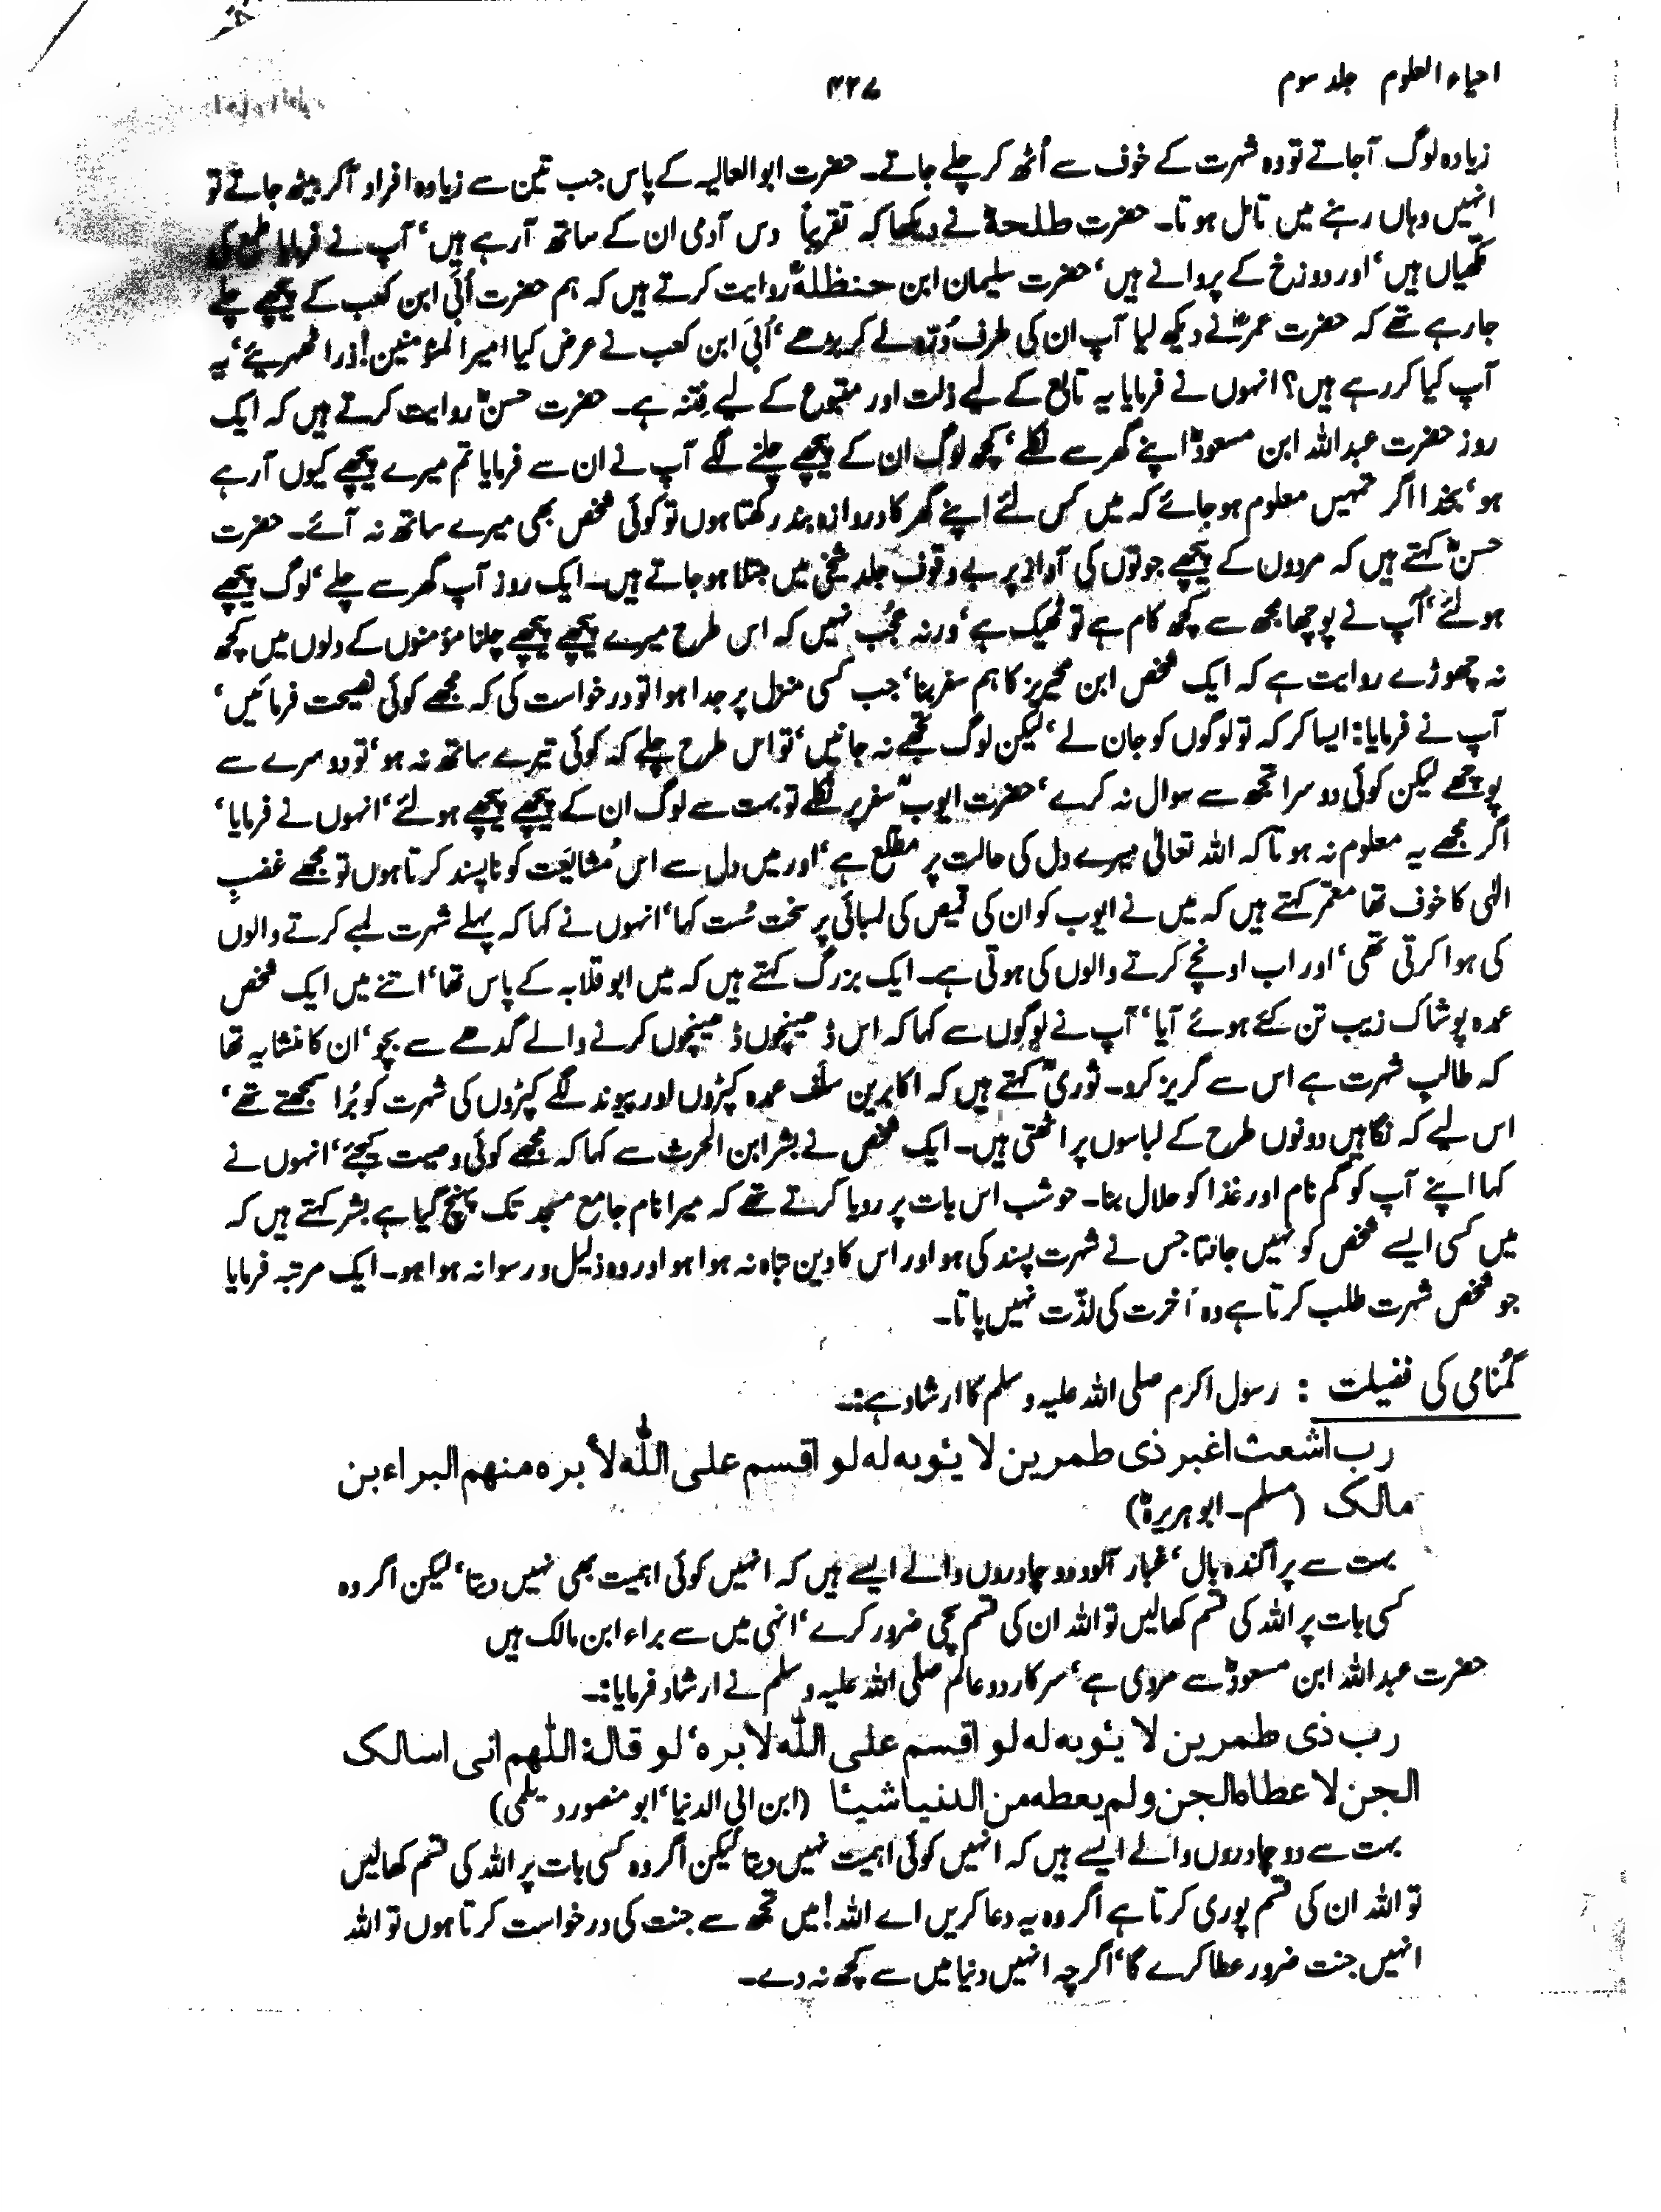 احیاء العلوم جلد سوم
۴۲۷
زیادہ لوگ آجاتے تو وہ شہرت کے خوف سے اُٹھ کر چلے جاتے۔ حضرت ابو العالیہ کے پاس جب تین سے زیادہ افراد آکر بیٹھ جاتے تو
انہیں وہاں رہنے میں تامل ہوتا۔ حضرت طلحہؓ نے دیکھا کہ تقریباً دس آدمی ان کے ساتھ آرہے ہیں‘ آپ نے فرمایا طمع کی
مکھیاں ہیں‘ اور دوزخ کے پروانے ہیں‘ حضرت سلیمان ابن حنظلہؓ روایت کرتے ہیں کہ ہم حضرت اُبَیّ ابن کعب کے پیچھے چلے
جارہے تھے کہ حضرت عمرؓ نے دیکھ لیا آپ ان کی طرف دُرّہ لے کر بڑھے‘ اُبَیّ ابن کعب نے عرض کیا امیر المؤمنین! ذرا ٹھہریئے‘ یہ
آپ کیا کررہے ہیں؟ انہوں نے فرمایا یہ تابع کے لیے ذلت اور متبوع کے لیے فتنہ ہے۔ حضرت حسنؓ روایت کرتے ہیں کہ ایک
روز حضرت عبداللہ ابن مسعودؓ اپنے گھر سے نکلے‘ کچھ لوگ ان کے پیچھے چلنے لگے آپ نے ان سے فرمایا تم میرے پیچھے کیوں آرہے
ہو‘ بخدا اگر تمہیں معلوم ہوجائے کہ میں کس لئے اپنے گھر کا دروازہ بند رکھتا ہوں تو کوئی شخص بھی میرے ساتھ نہ آئے۔ حضرت
حسنؓ کہتے ہیں کہ مردوں کے پیچھے جوتوں کی آواز پر بے وقوف جلد شیخی میں مبتلا ہوجاتے ہیں۔ ایک روز آپ گھر سے چلے‘ لوگ پیچھے
ہولئے‘ آپ نے پوچھا مجھ سے کچھ کام ہے تو ٹھیک ہے‘ ورنہ عجب نہیں کہ اس طرح میرے پیچھے پیچھے چلنا مؤمنوں کے دلوں میں کچھ
نہ چھوڑے روایت ہے کہ ایک شخص ابن محیریز کا ہم سفر بنا‘ جب کسی منزل پر جدا ہوا تو درخواست کی کہ مجھے کوئی نصیحت فرمائیں‘
آپ نے فرمایا: ایسا کر کہ تو لوگوں کو جان لے‘ لیکن لوگ تجھے نہ جانیں‘ تو اس طرح چلے کہ کوئی تیرے ساتھ نہ ہو‘ تو دوسرے سے
پوچھے لیکن کوئی دوسرا تجھ سے سوال نہ کرے‘ حضرت ایوبؒ سفر پر نکلے تو بہت سے لوگ ان کے پیچھے پیچھے ہولئے‘ انہوں نے فرمایا‘
اگر مجھے یہ معلوم نہ ہوتا کہ اللہ تعالیٰ میرے دل کی حالت پر مطلع ہے‘ اور میں دل سے اس مُشایَعَت کو ناپسند کرتا ہوں تو مجھے غضبِ
الٰہی کا خوف تھا معمر کہتے ہیں کہ میں نے ایوب کو ان کی قمیص کی لمبائی پر سخت سُست کہا‘ انہوں نے کہا کہ پہلے شہرت لمبے کرتے والوں
کی ہوا کرتی تھی‘ اور اب اونچے کرتے والوں کی ہوتی ہے۔ ایک بزرگ کہتے ہیں کہ میں ابو قلابہ کے پاس تھا‘ اتنے میں ایک شخص
عمدہ پوشاک زیب تن کئے ہوئے آیا‘ آپ نے لوگوں سے کہا کہ اس ڈھینچوں ڈھینچوں کرنے والے گدھے سے بچو‘ ان کا منشا یہ تھا
کہ طالبِ شہرت ہے اس سے گریز کرو۔ ثوریؒ کہتے ہیں کہ اکابرین سلف عمدہ کپڑوں اور پیوند لگے کپڑوں کی شہرت کو بُرا سمجھتے تھے‘
اس لیے کہ نگاہیں دونوں طرح کے لباسوں پر اٹھتی ہیں۔ ایک شخص نے بشر ابن الحرث سے کہا کہ مجھے کوئی وصیت کیجئے‘ انہوں نے
کہا اپنے آپ کو گم نام اور غذا کو حلال بنا۔ حوشب اس بات پر رویا کرتے تھے کہ میرا نام جامع مسجد تک پہنچ گیا ہے بشر کہتے ہیں کہ
میں کسی ایسے شخص کو نہیں جانتا جس نے شہرت پسند کی ہو اور اس کا دین تباہ نہ ہوا ہو اور وہ ذلیل و رسوا نہ ہوا ہو۔ ایک مرتبہ فرمایا
جو شخص شہرت طلب کرتا ہے وہ آخرت کی لذّت نہیں پاتا۔
گُمنامی کی فضیلت : رسول اکرم صلی اللہ علیہ وسلم کا ارشاد ہے:۔
رب اشعث اغبر ذی طمرین لا یئوبه له لو اقسم علی اللّٰه لأبره منهم البراء بن
مالک (مسلم۔ ابو ہریرہؓ)
بہت سے پراگندہ بال‘ غبار آلود دو چادروں والے ایسے ہیں کہ انہیں کوئی اہمیت بھی نہیں دیتا‘ لیکن اگر وہ
کسی بات پر اللہ کی قسم کھالیں تو اللہ ان کی قسم سچی ضرور کرے‘ انہی میں سے براء ابن مالک ہیں
حضرت عبداللہ ابن مسعودؓ سے مروی ہے‘ سرکار دوعالم صلی اللہ علیہ وسلم نے ارشاد فرمایا:۔
رب ذی طمرین لا یئوبه له لو اقسم علی اللّٰه لابره‘ لو قال: اللّٰهم انی اسالک
الجن لا عطاه الجن ولم یعطه من الدنیا شیئا (ابن ابی الدنیا‘ ابو منصور دیلمی)
بہت سے دو چادروں والے ایسے ہیں کہ انہیں کوئی اہمیت نہیں دیتا لیکن اگر وہ کسی بات پر اللہ کی قسم کھالیں
تو اللہ ان کی قسم پوری کرتا ہے اگر وہ یہ دعا کریں اے اللہ! میں تجھ سے جنت کی درخواست کرتا ہوں تو اللہ
انہیں جنت ضرور عطا کرے گا‘ اگرچہ انہیں دنیا میں سے کچھ نہ دے۔